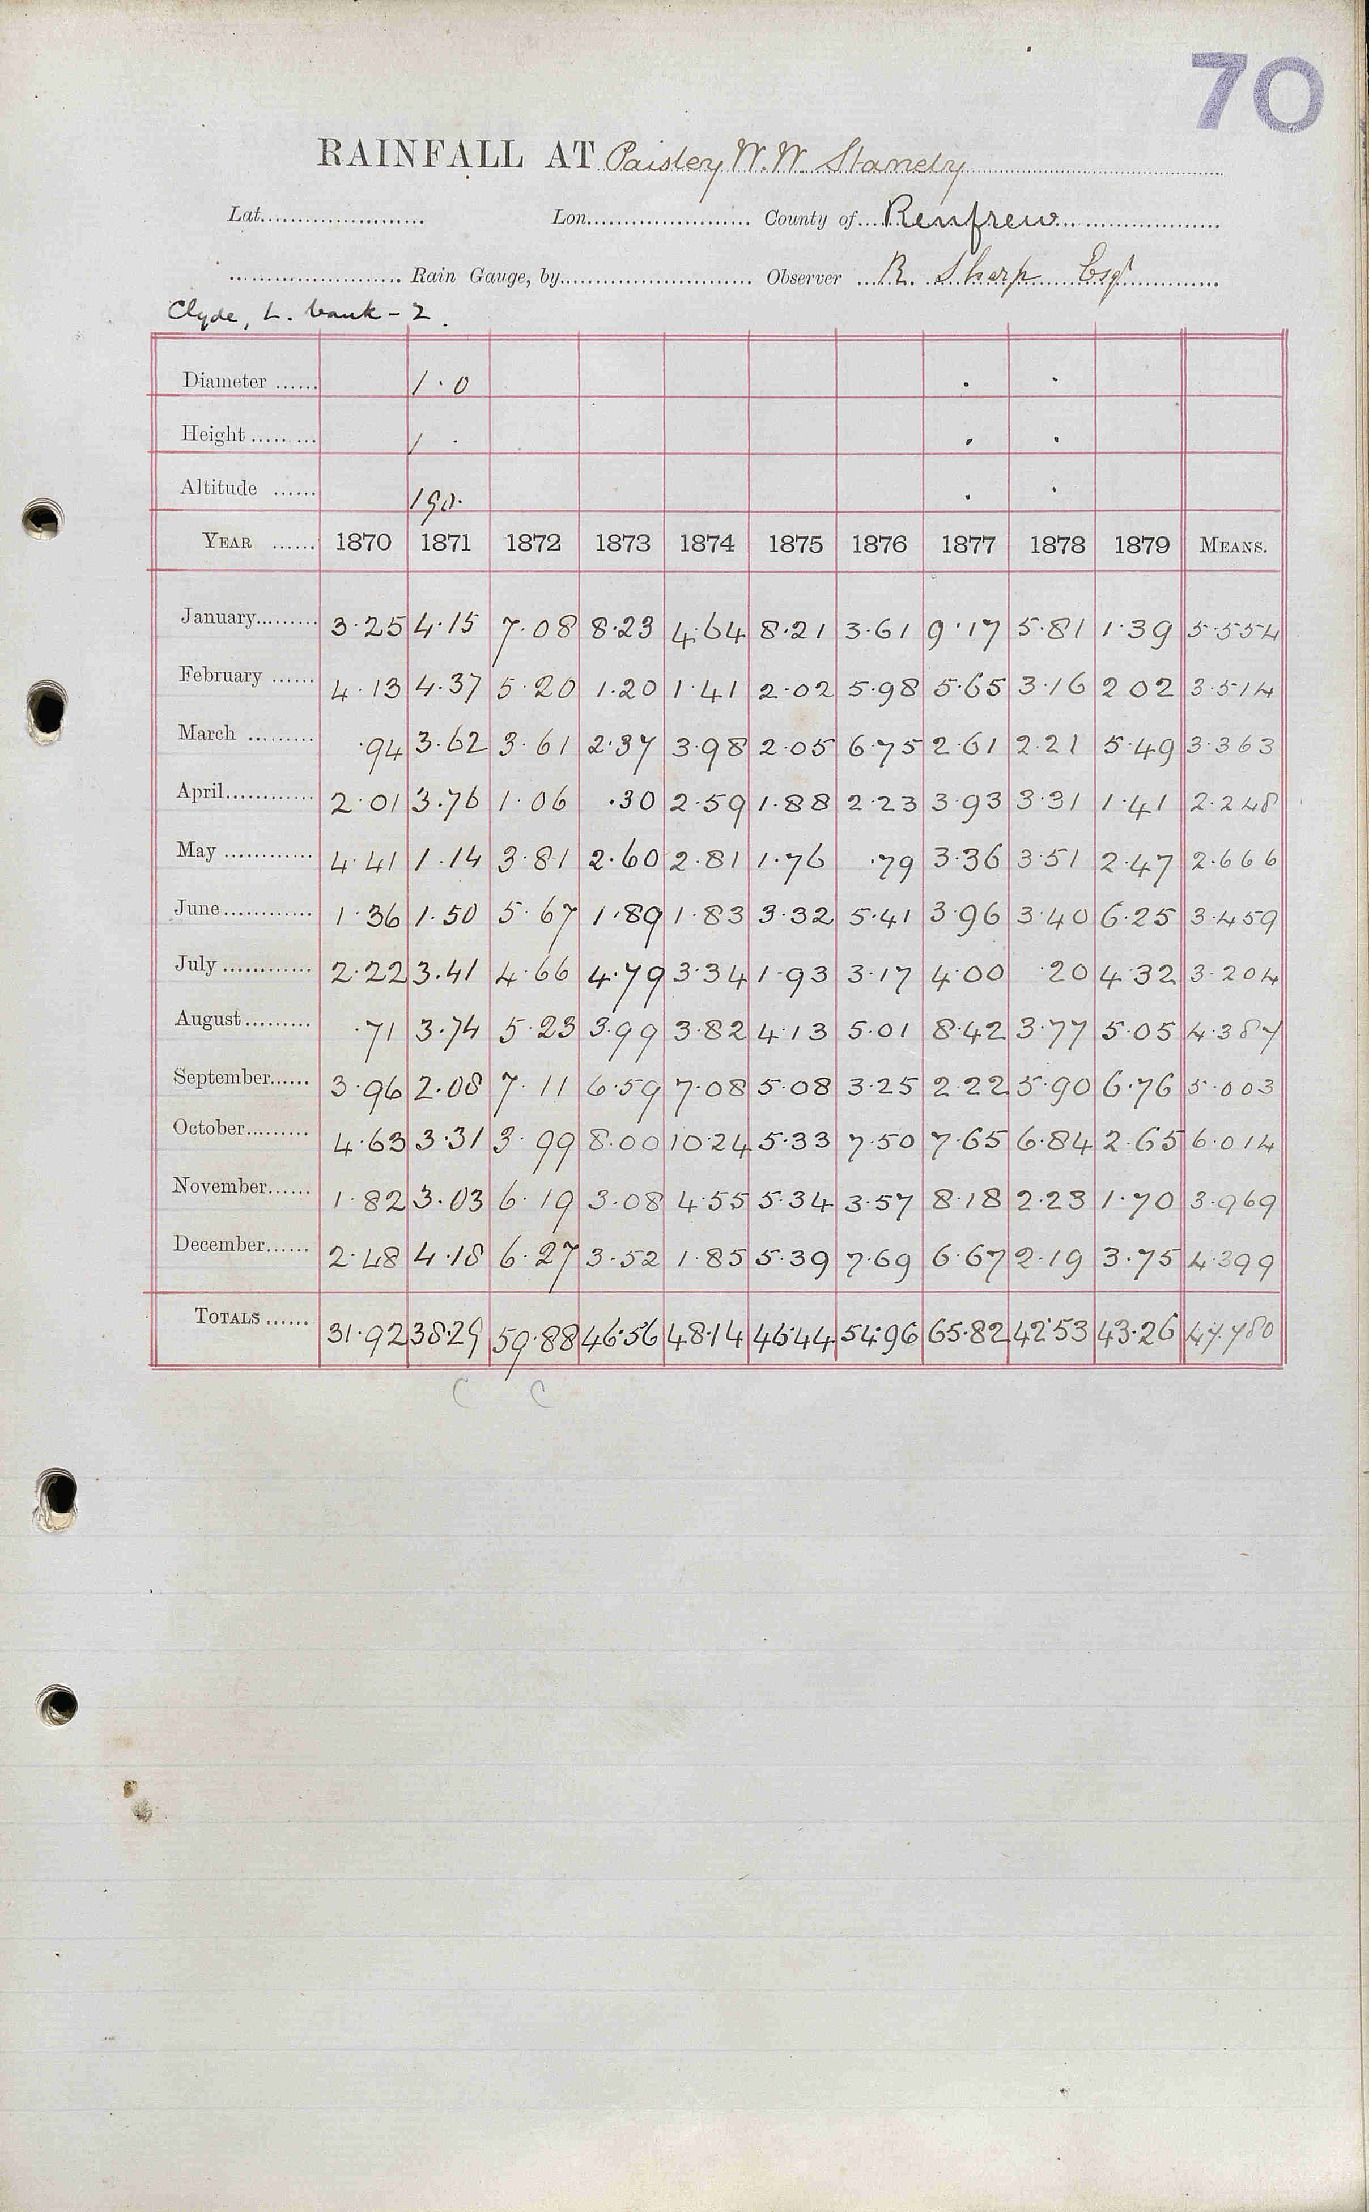 70
RAINFALL AT Paisley W.W. Stanely
Lat. Lon. County of Renfrew
Rain Gauge, by Observer R. Sharp Esqr
Clyde, L. bank - 2.
Diameter 1.0 . .
Height 1 . . .
Altitude 190. . .
YEAR 1870 1871 1872 1873 1874 1875 1876 1877 1878 1879 MEANS.
January 3.25 4.15 7.08 8.23 4.64 8.21 3.61 9.17 5.81 1.39 5.554
February 4.13 4.37 5.20 1.20 1.41 2.02 5.98 5.65 3.16 2 02 3.514
March .94 3.62 3.61 2.37 3.98 2.05 6.75 2.61 2.21 5.49 3.363
April 2.01 3.76 1.06 .30 2.59 1.88 2.23 3.93 3.31 1.41 2.248
May 4.41 1.14 3.81 2.60 2.81 1.76 .79 3.36 3.51 2.47 2.666
June 1.36 1.50 5.67 1.89 1.83 3.32 5.41 3.96 3.40 6.25 3.459
July 2.22 3.41 4.66 4.79 3.34 1.93 3.17 4.00 .20 4.32 3.204
August .71 3.74 5.23 3.99 3.82 4.13 5.01 8.42 3.77 5.05 4.387
September 3.96 2.08 7.11 6.59 7.08 5.08 3.25 2.22 5.90 6.76 5.003
October 4.63 3.31 3.99 8.00 10.24 5.33 7.50 7.65 6.84 2.65 6.014
November 1.82 3.03 6.19 3.08 4.55 5.34 3.57 8.18 2.23 1.70 3.969
December 2.48 4.18 6.27 3.52 1.85 5.39 7.69 6.67 2.19 3.75 4.399
TOTALS 31.92 38.29 59.88 46.56 48.14 46.44 54.96 65.82 42.53 43.26 47.780
C C